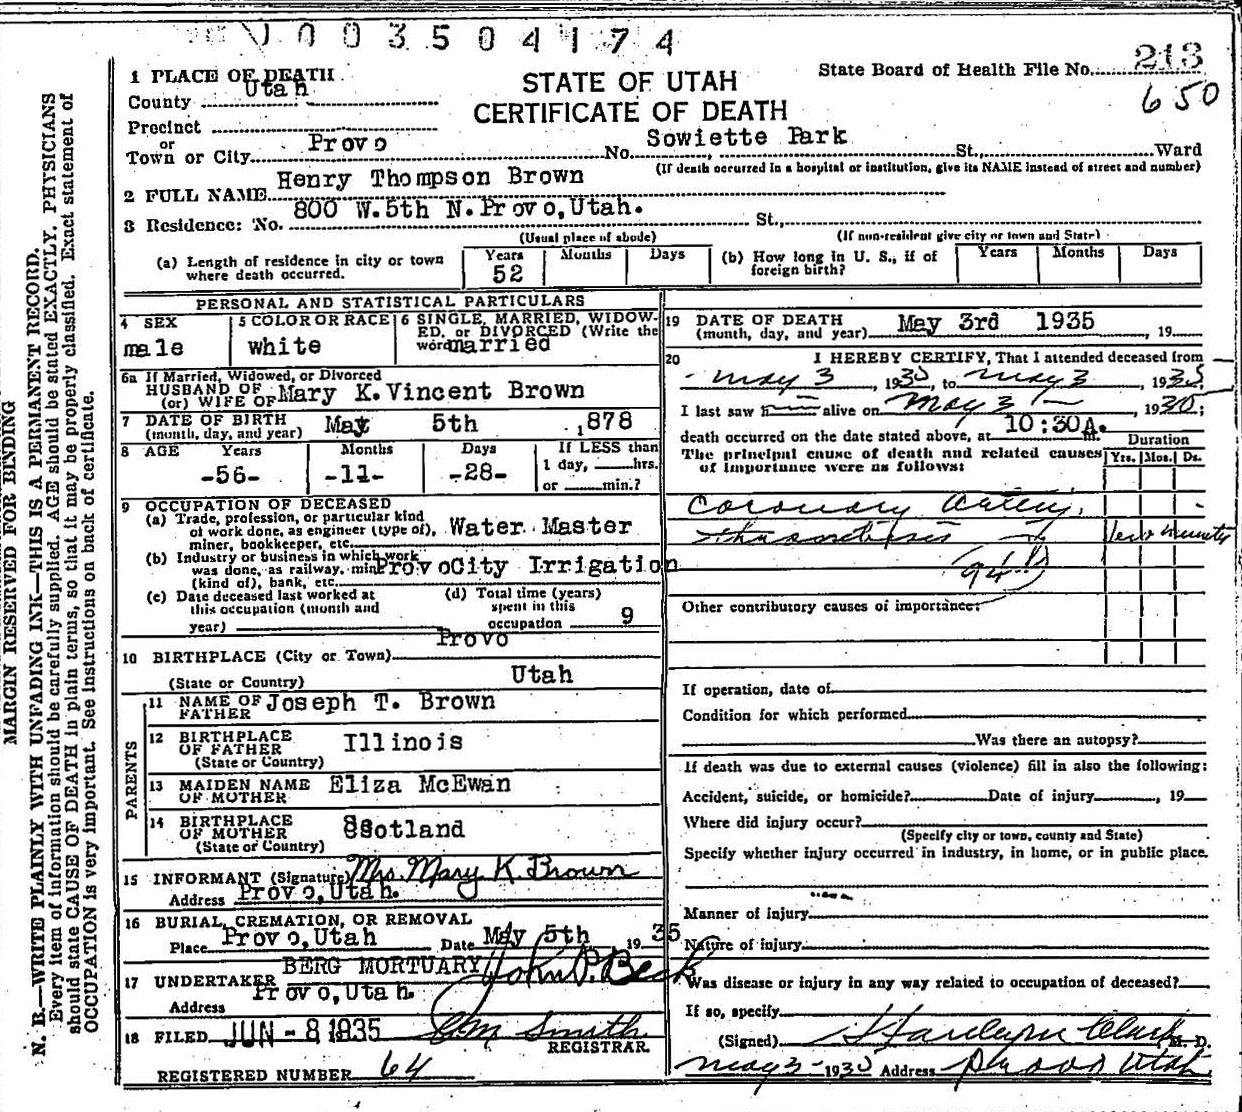 003504174
213
650
STATE OF UTAH
CERTIFICATE OF DEATH
State Board of Health File No.
1 PLACE OF DEATH
County Utah
Precinct
or
Town or City Provo No. Sowiette Park St., Ward
(If death occurred in a hospital or institution, give its NAME instead of street and number)
2 FULL NAME Henry Thompson Brown
3 Residence: No. 800 W. 5th N. Provo, Utah. St.,
(Usual place of abode) (If non-resident give city or town and State)
(a) Length of residence in city or town where death occurred. Years 52 Months Days
(b) How long in U. S., if of foreign birth? Years Months Days
PERSONAL AND STATISTICAL PARTICULARS
4 SEX male
5 COLOR OR RACE white
6 SINGLE, MARRIED, WIDOWED, or DIVORCED (Write the word) married
6a If Married, Widowed, or Divorced
HUSBAND OF
(or) WIFE OF Mary K. Vincent Brown
7 DATE OF BIRTH
(month, day, and year) May 5th 1878
8 AGE Years Months Days If LESS than
-56- -11- -28- 1 day, hrs.
or min.?
9 OCCUPATION OF DECEASED
(a) Trade, profession, or particular kind
of work done, as engineer (type of),
miner, bookkeeper, etc. Water Master
(b) Industry or business in which work
was done, as railway, mine
(kind of), bank, etc. Provo City Irrigation
(c) Date deceased last worked at
this occupation (month and
year)
(d) Total time (years)
spent in this
occupation 9
10 BIRTHPLACE (City or Town) Provo
(State or Country) Utah
PARENTS
11 NAME OF
FATHER Joseph T. Brown
12 BIRTHPLACE
OF FATHER
(State or Country) Illinois
13 MAIDEN NAME
OF MOTHER Eliza McEwan
14 BIRTHPLACE
OF MOTHER
(State or Country) Scotland
15 INFORMANT (Signature) Mrs. Mary K. Brown
Address Provo, Utah.
16 BURIAL, CREMATION, OR REMOVAL
Place Provo, Utah Date May 5th 19 35
17 UNDERTAKER BERG MORTUARY John P. Beck
Address Provo, Utah.
18 FILED JUN - 8 1935 Smith
REGISTRAR.
REGISTERED NUMBER 64
19 DATE OF DEATH
(month, day, and year) May 3rd 1935, 19
20 I HEREBY CERTIFY, That I attended deceased from
May 3, 1935, to May 3, 1935.
I last saw h alive on May 3, 19
death occurred on the date stated above, at 10:30A. m.
The principal cause of death and related causes
of importance were as follows:
Duration
Yrs. Mos. Ds.
Coronary Artery
thrombosis few minutes
94
Other contributory causes of importance:
If operation, date of
Condition for which performed
Was there an autopsy?
If death was due to external causes (violence) fill in also the following:
Accident, suicide, or homicide? Date of injury, 19
Where did injury occur?
(Specify city or town, county and State)
Specify whether injury occurred in industry, in home, or in public place.
Manner of injury
Nature of injury
Was disease or injury in any way related to occupation of deceased?
If so, specify
(Signed) Clark M. D.
May 3- 193 Address Provo Utah
MARGIN RESERVED FOR BINDING
N. B.—WRITE PLAINLY WITH UNFADING INK—THIS IS A PERMANENT RECORD.
Every item of information should be carefully supplied. AGE should be stated EXACTLY. PHYSICIANS
should state CAUSE OF DEATH in plain terms, so that it may be properly classified. Exact statement of
OCCUPATION is very important. See instructions on back of certificate.